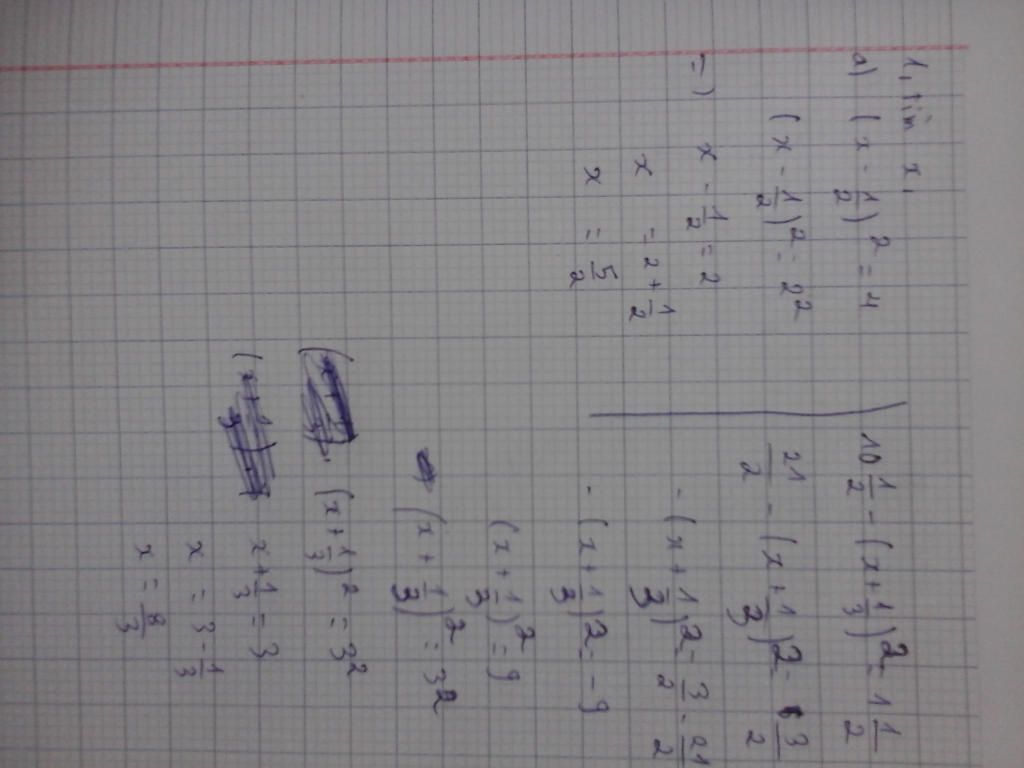 1, tìm x,
a) (x - 1/2)² = 4
(x - 1/2)² = 2²
=) x - 1/2 = 2
x = 2 + 1/2
x = 5/2
10 1/2 - (x + 1/3)² = 1 1/2
21/2 - (x + 1/3)² = 3/2
- (x + 1/3)² = 3/2 - 21/2
- (x + 1/3)² = - 9
(x + 1/3)² = 9
(x + 1/3)² = 3²
(x + 1/3)² = 3²
x + 1/3 = 3
x = 3 - 1/3
x = 8/3